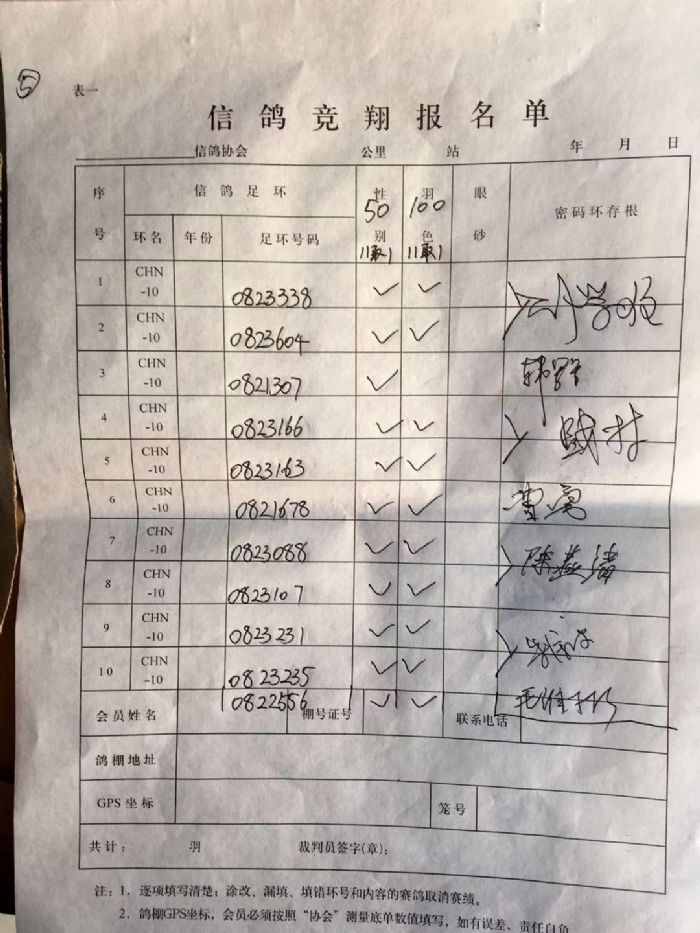 ⑤
表一
信鸽竞翔报名单
信鸽协会 公里 站 年 月 日
序号 信鸽足环 性别 羽色 眼砂 密码环存根
50 100
环名 年份 足环号码 11取1 11取1
1 CHN-10 0823338 ✓ ✓
2 CHN-10 0823604 ✓ ✓
3 CHN-10 0821307 ✓
4 CHN-10 0823166 ✓ ✓
5 CHN-10 0823163 ✓ ✓
6 CHN-10 0821678 ✓ ✓
7 CHN-10 0823088 ✓ ✓
8 CHN-10 0823107 ✓ ✓
9 CHN-10 0823231 ✓ ✓
10 CHN-10 0823235 ✓ ✓
0822556 ✓ ✓
会员姓名 棚号证号 联系电话
鸽棚地址
GPS坐标 笼号
共计： 羽 裁判员签字(章)：
注：1．逐项填写清楚；涂改、漏填、填错环号和内容的赛鸽取消赛绩。
2．鸽棚GPS坐标，会员必须按照“协会”测量底单数值填写，如有误差、责任自负